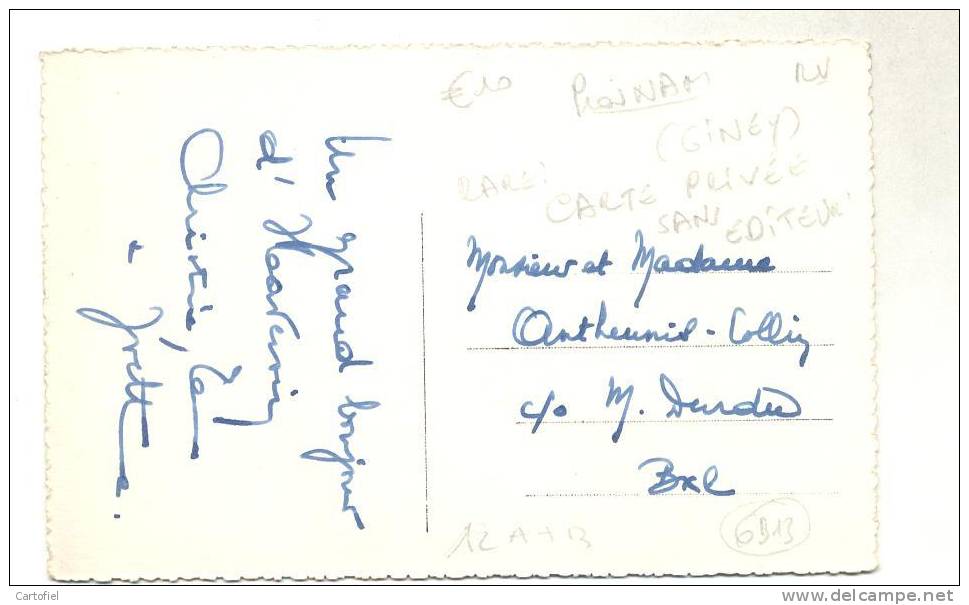 Un grand bonjour
d'
Christie,
" Yvette.
€10
RV
(CINEY)
RARE!
CARTE PRIVÉE
SANS
EDITEUR!
Monsieur et Madame
Antheunis - Collin
c/o M. Durdu
Bxl
12 A + B
6913
Cartofiel
www.delcampe.net